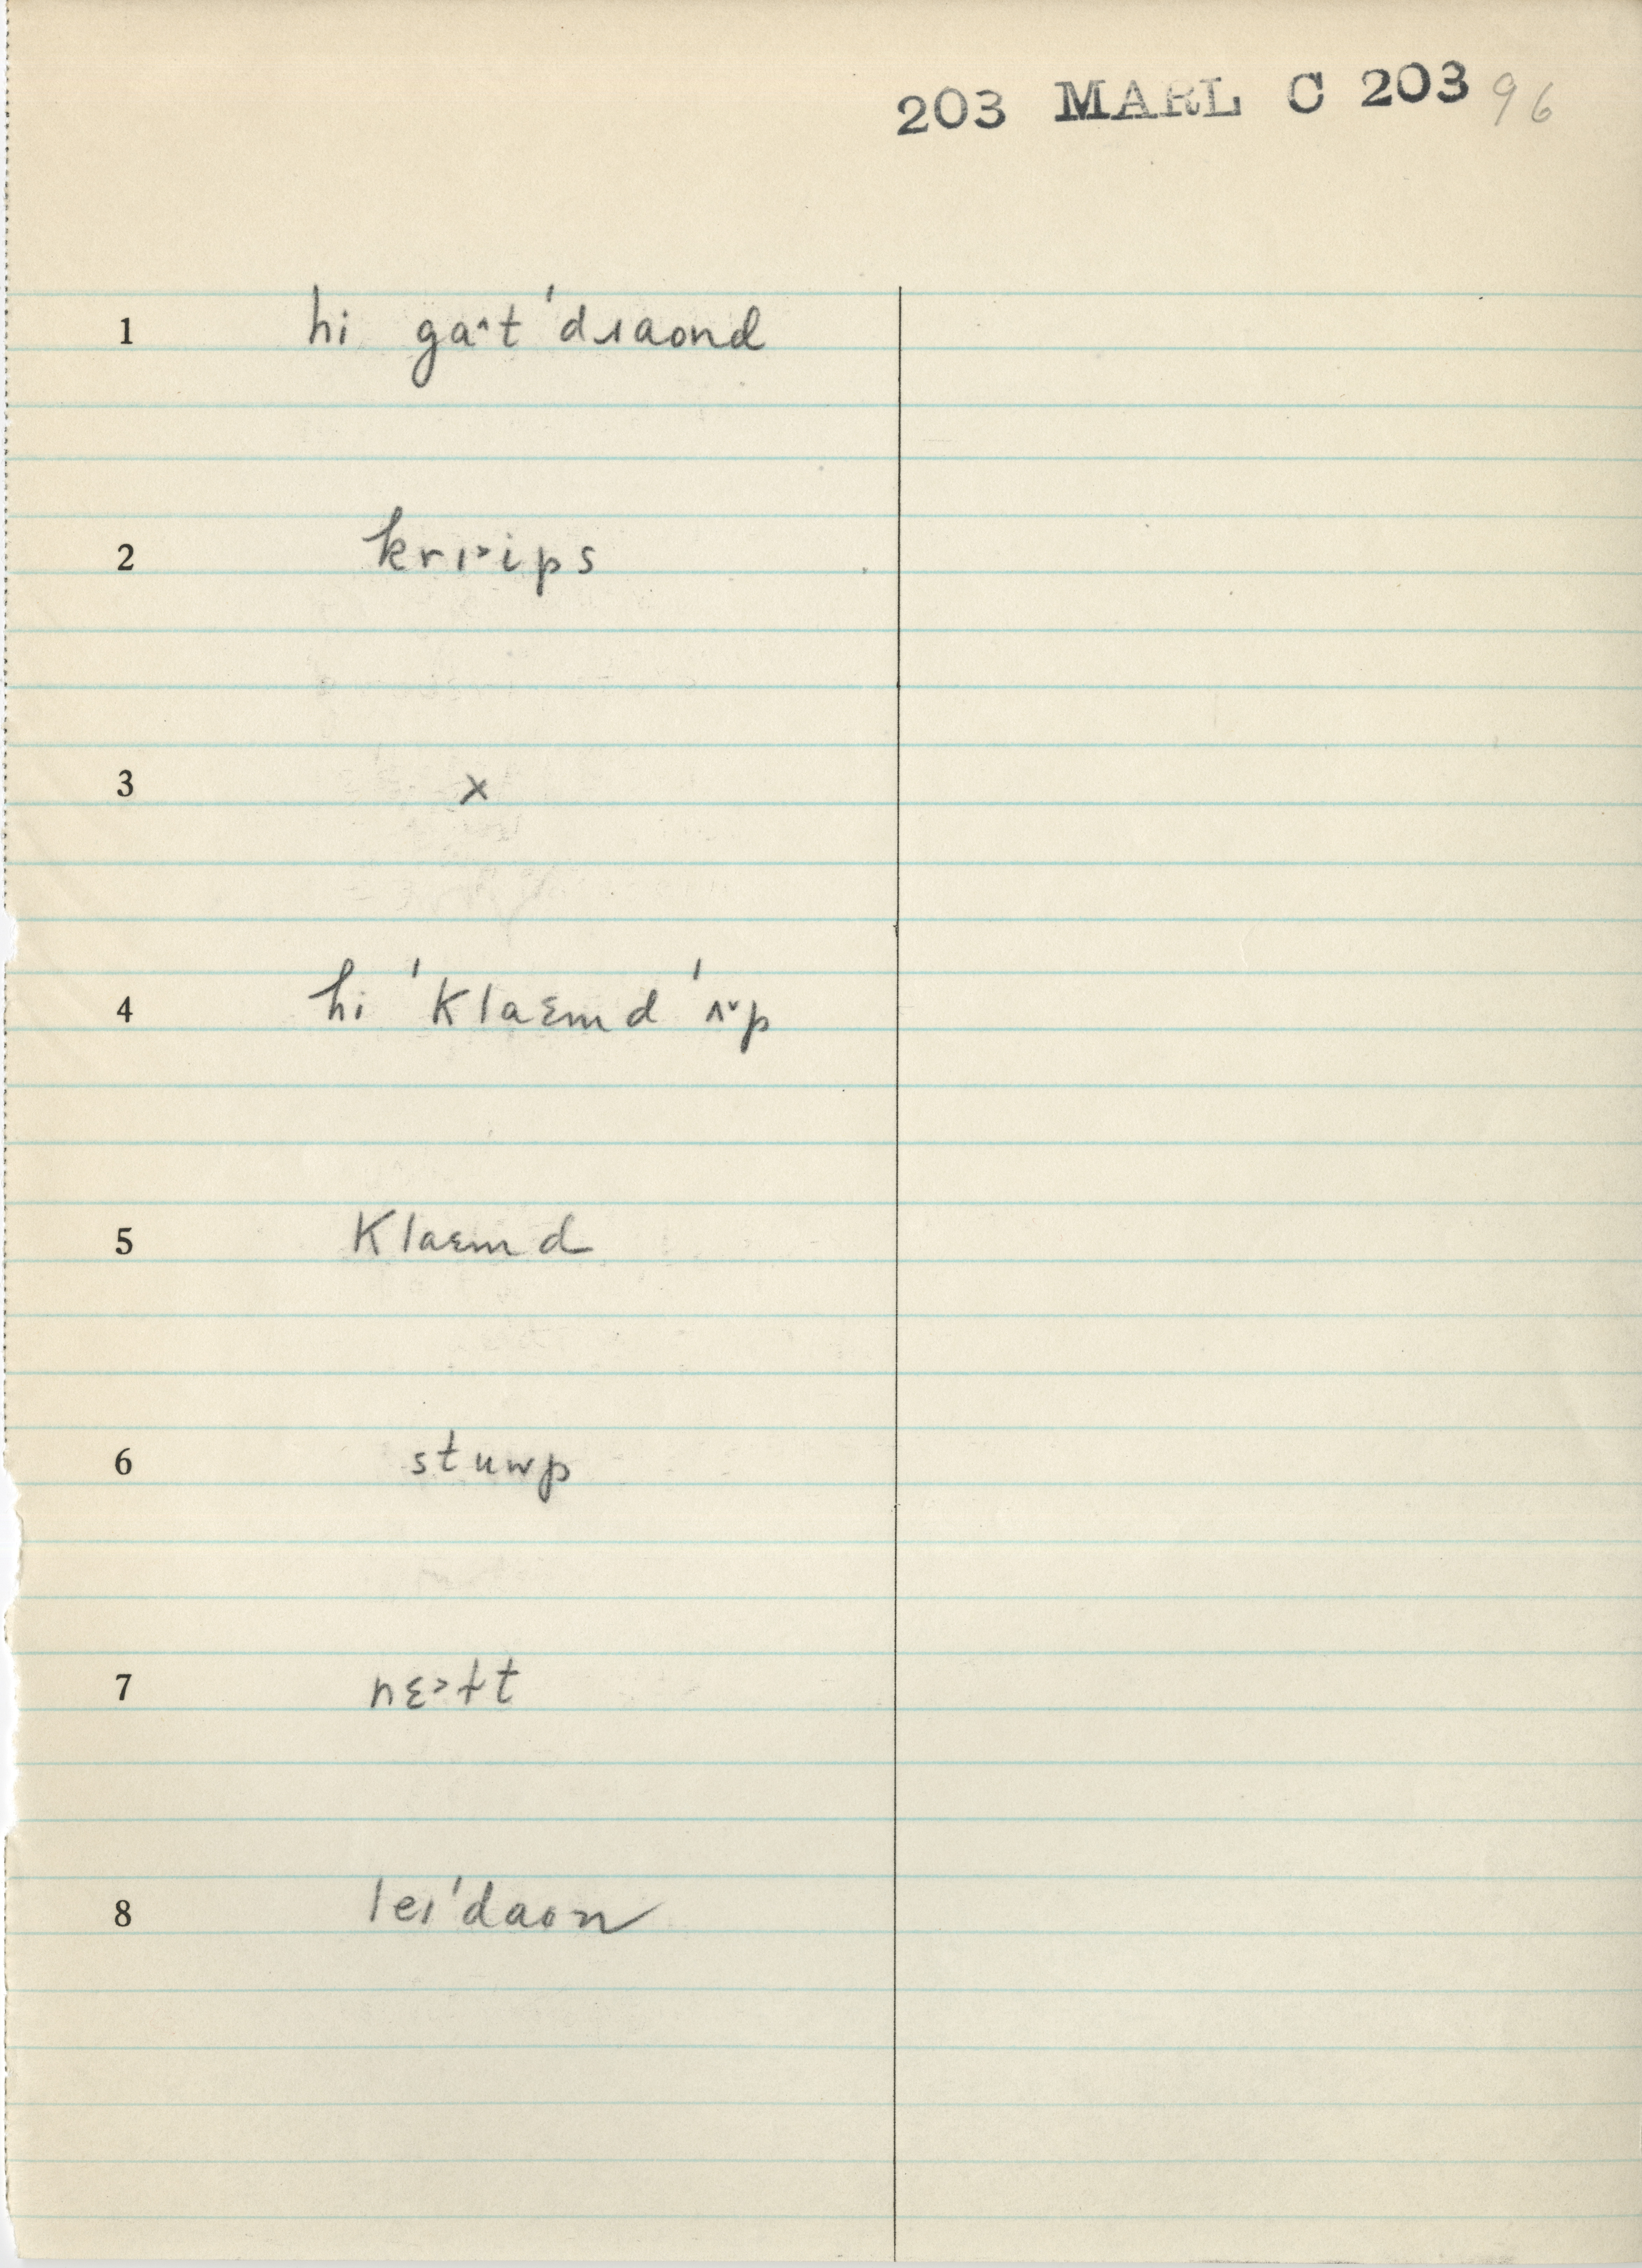 203 MARL C 203 96
1 hi ga^t 'dɹaond
2 krɪ˃ips
3 x
4 hi 'klaɛmd 'ʌ˅p
5 klaɛmd
6 stuwp
7 nɛ˃ɫt
8 leɪ'daon